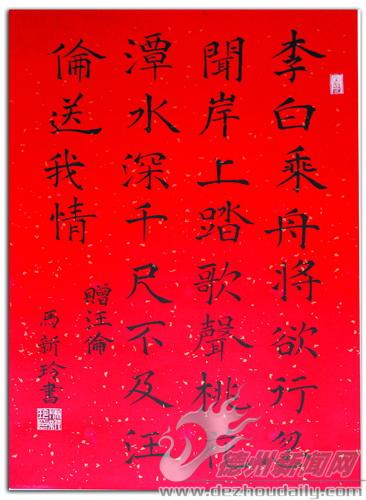 李白乘舟將欲行忽
聞岸上踏歌聲桃花
潭水深千尺不及汪
倫送我情
贈汪倫
馬新玲書
德州新闻网
www.dezhoudaily.com